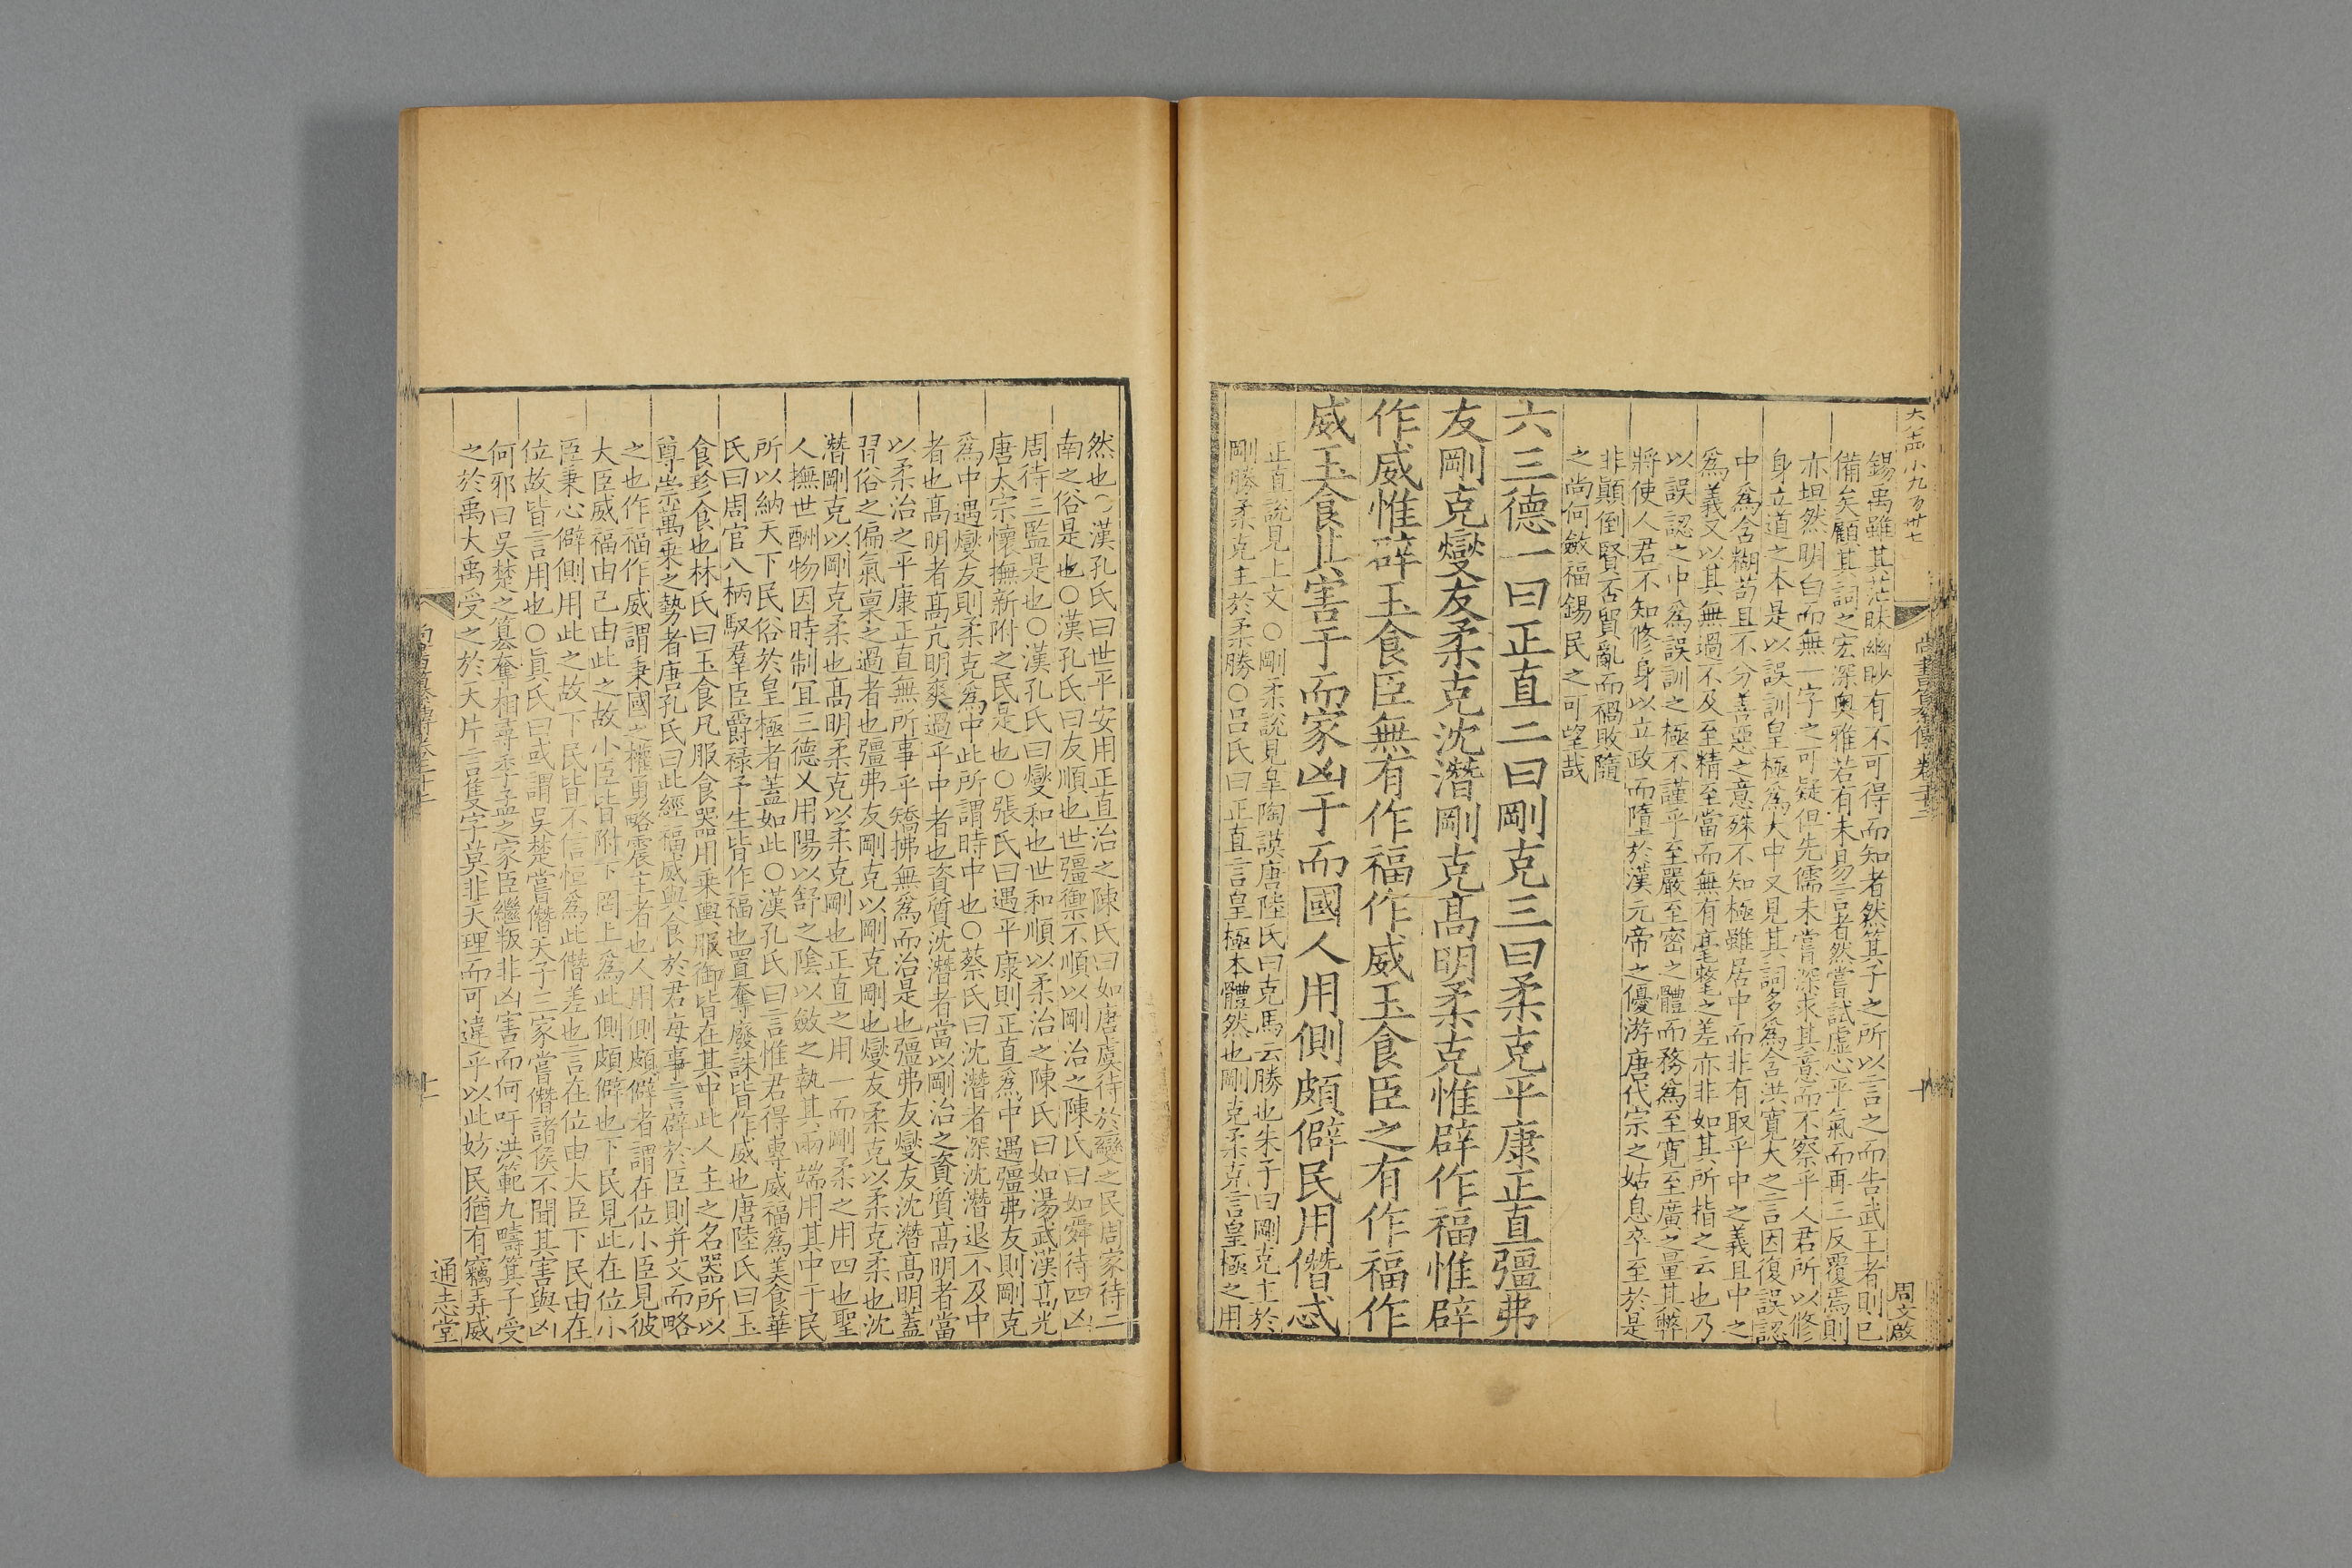 尚書纂傳卷
周文啟
錫禹雖其茫昧幽眇有不可得而知者然箕子之所以言之而告武王者則已
備矣顧其詞之宏深奧雅若有未易言者然嘗試虛心平氣而再三反覆焉則
亦坦然明白而無一字之可疑但先儒未嘗深求其意而不察乎人君所以修
身立道之本是以誤訓皇極爲大中又見其詞多爲含洪寬大之言因復誤認
中爲含糊苟且不分善惡之意殊不知極雖居中而非有取乎中之義且中之
爲義又以其無過不及至精至當而無有毫髮之差亦非如其所指之云也乃
以誤認之中爲誤訓之極不謹乎至嚴至密之體而務爲至寬至廣之量其弊
將使人君不知修身以立政而墮於漢元帝之優游唐代宗之姑息卒至於是
非顛倒賢否貿亂而禍敗隨
之尚何斂福錫民之可望哉
六三德一曰正直二曰剛克三曰柔克平康正直彊弗
友剛克燮友柔克沈潛剛克高明柔克惟辟作福惟辟
作威惟辟玉食臣無有作福作威玉食臣之有作福作
威玉食其害于而家凶于而國人用側頗僻民用僭忒
正直說見上文○剛柔說見皐陶謨唐陸氏曰克馬云勝也朱子曰剛克主於
剛勝柔克主於柔勝○呂氏曰正直言皇極本體然也剛克柔克言皇極之用
然也○漢孔氏曰世平安用正直治之陳氏曰如唐虞待於變之民周家待二
南之俗是也○漢孔氏曰友順也世彊禦不順以剛治之陳氏曰如舜待四凶
周待三監是也○漢孔氏曰燮和也世和順以柔治之陳氏曰如湯武漢高光
唐太宗懷撫新附之民是也○張氏曰遇平康則正直爲中遇彊弗友則剛克
爲中遇燮友則柔克爲中此所謂時中也○蔡氏曰沈潛者深沈潛退不及中
者也高明者高亢明爽過乎中者也資質沈潛者當以剛治之資質高明者當
以柔治之平康正直無所事乎矯拂無爲而治是也彊弗友燮友沈潛高明蓋
習俗之偏氣稟之過者也彊弗友剛克以剛克剛也燮友柔克以柔克柔也沈
潛剛克以剛克柔也高明柔克以柔克剛也正直之用一而剛柔之用四也聖
人撫世酬物因時制宜三德乂用陽以舒之陰以斂之執其兩端用其中于民
所以納天下民俗於皇極者蓋如此○漢孔氏曰言惟君得專威福爲美食華
氏曰周官八柄馭羣臣爵祿予生皆作福也置奪廢誅皆作威也唐陸氏曰玉
食珍食也林氏曰玉食凡服食器用乘輿服御皆在其中此人主之名器所以
尊崇萬乘之勢者唐孔氏曰此經福威與食於君每事言辟於臣則并文而略
之也作福作威謂秉國之權勇略震主者也人用側頗僻者謂在位小臣見彼
大臣威福由己由此之故小臣皆附下罔上爲此側頗僻也下民見此在位小
臣秉心僻側用此之故下民皆不信恒爲此僭差也言在位由大臣下民由在
位故皆言用也○眞氏曰或謂吳楚嘗僭天子三家嘗僭諸侯不聞其害與凶
何邪曰吳楚之篡奪相尋季孟之家臣繼叛非凶害而何吁洪範九疇箕子受
之於禹大禹受之於天片言隻字莫非天理而可違乎以此妨民猶有竊弄威
通志堂
十一